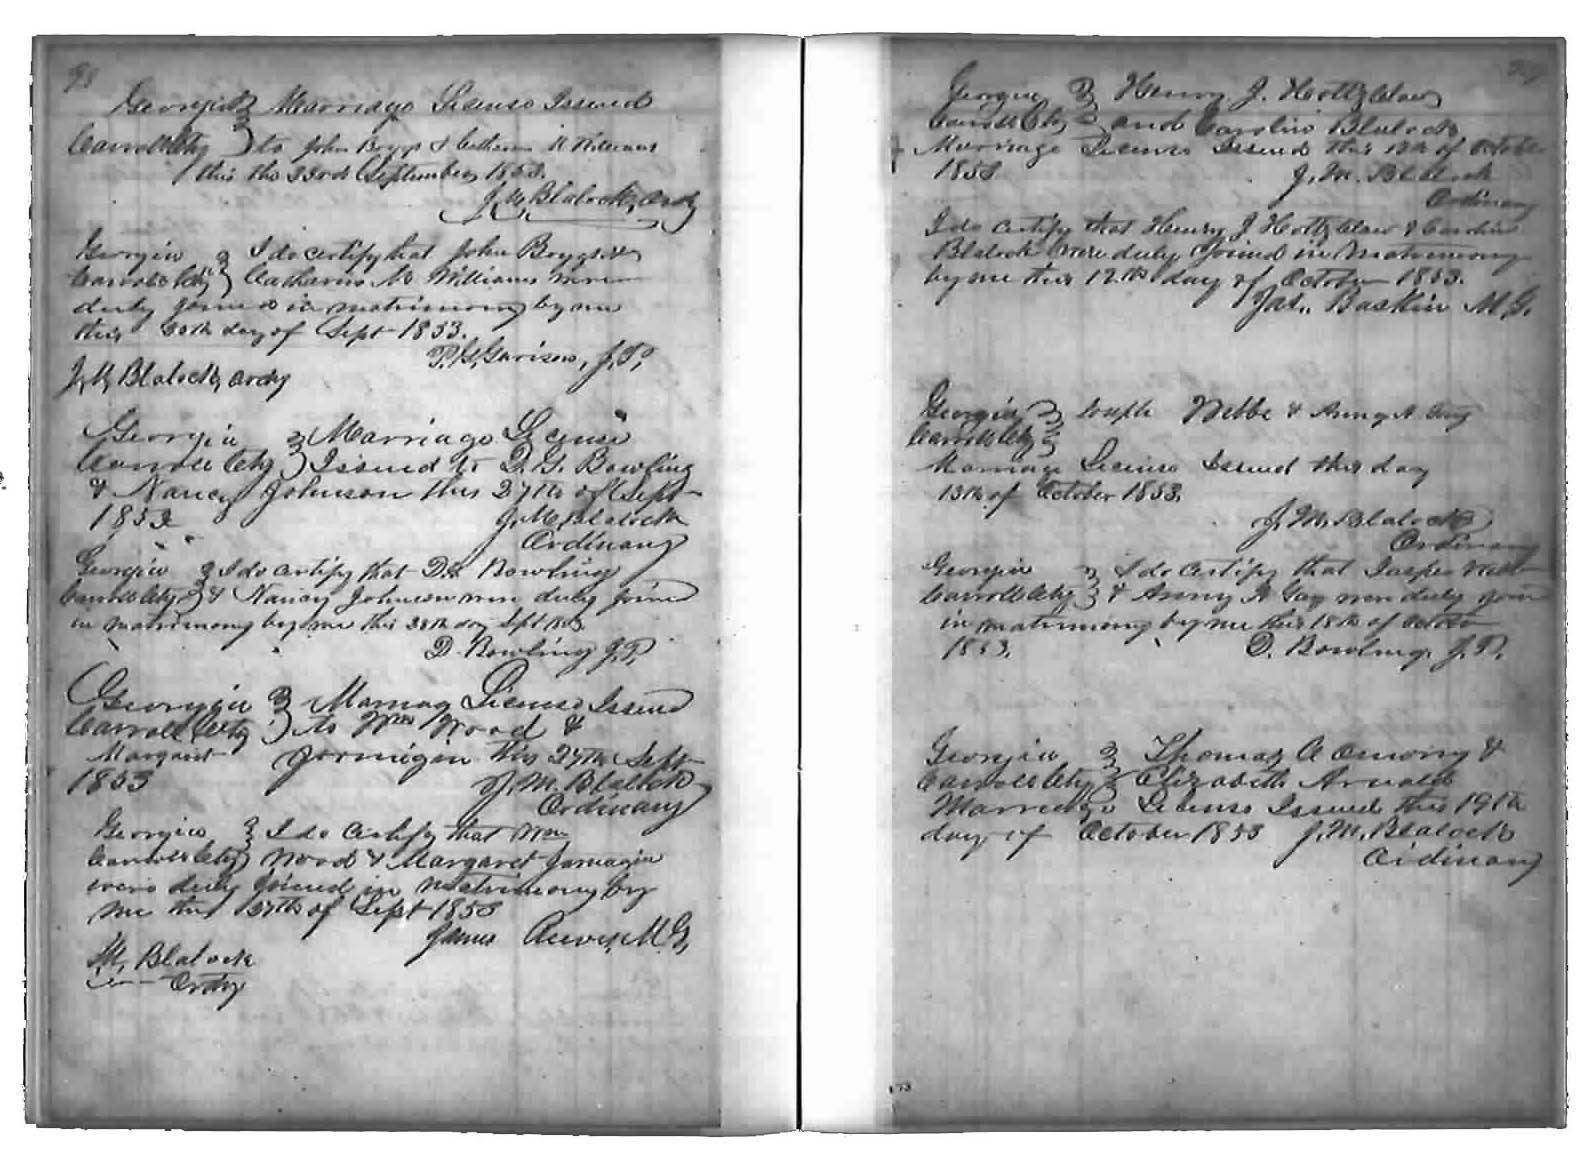 98
Georgia } Marriage License Issued
Carroll Cty } to John Boggs & Catharin M Williams
this the 23rd September 1853.
J. M. Blalock, Ordy
Georgia } I do certify that John Boggs &
Carroll Cty } Catharin M Williams were
duly joined in matrimony by me
this 30th day of Sept 1853.
P. G. Garison, J.P.
J. M. Blalock, Ordy
Georgia } Marriage License
Carroll Cty } Issued to D. G. Bowling
& Nancy Johnson this 27th of Sept
1853
J. M. Blalock
Ordinary
Georgia } I do certify that D. G. Bowling
Carroll Cty } & Nancy Johnson were duly joined
in matrimony by me this 28th day Sept 1853
D. Bowling J.P.
Georgia } Marriag License Issued
Carroll Cty } to Wm Wood &
Margaret Jormigin this 27th Sept
1853
J. M. Blalock
Ordinary
Georgia } I do certify that Wm
Carroll Cty } Wood & Margaret Jarnagin
were duly joined in matrimony by
me this 27th of Sept 1853
James Reeves, M.G.
M. Blalock
Ordy
Georgia } Henry J. Holtzclaw
Carroll Cty } and Carolin Blalock
Marriage License Issued this 12th of October
1853
J. M. Blalock
Ordinary
I do certify that Henry J Holtzclaw & Carolin
Blalock were duly joined in matrimony
by me this 12th day of October 1853.
Jas. Baskin M.G.
Georgia } Joseph Webbe & Anny A.
Carroll Cty }
Marriage License Issued this day
13th of October 1853.
J. M. Blalock
Ordinary
Georgia } I do certify that
Carroll Cty } & Anny A Gay were duly join
in matrimony by me this 18th of October
1853.
D. Bowling J.P.
Georgia } Thomas A Emory &
Carroll Cty } Elizabeth Arnold
Marriage License Issued this 19th
day of October 1853 J. M. Blalock
Ordinary